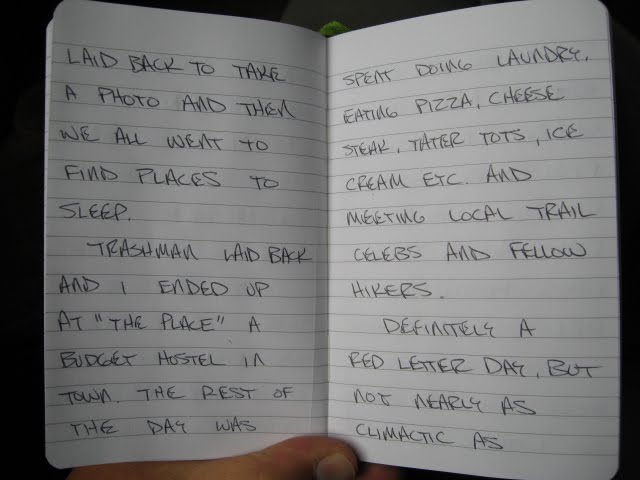 LAID BACK TO TAKE
A PHOTO AND THEN
WE ALL WENT TO
FIND PLACES TO
SLEEP.
TRASHMAN LAID BACK
AND I ENDED UP
AT "THE PLACE" A
BUDGET HOSTEL IN
TOWN. THE REST OF
THE DAY WAS
SPENT DOING LAUNDRY,
EATING PIZZA, CHEESE
STEAK, TATER TOTS, ICE
CREAM ETC. AND
MEETING LOCAL TRAIL
CELEBS AND FELLOW
HIKERS.
DEFINITELY A
RED LETTER DAY, BUT
NOT NEARLY AS
CLIMACTIC AS